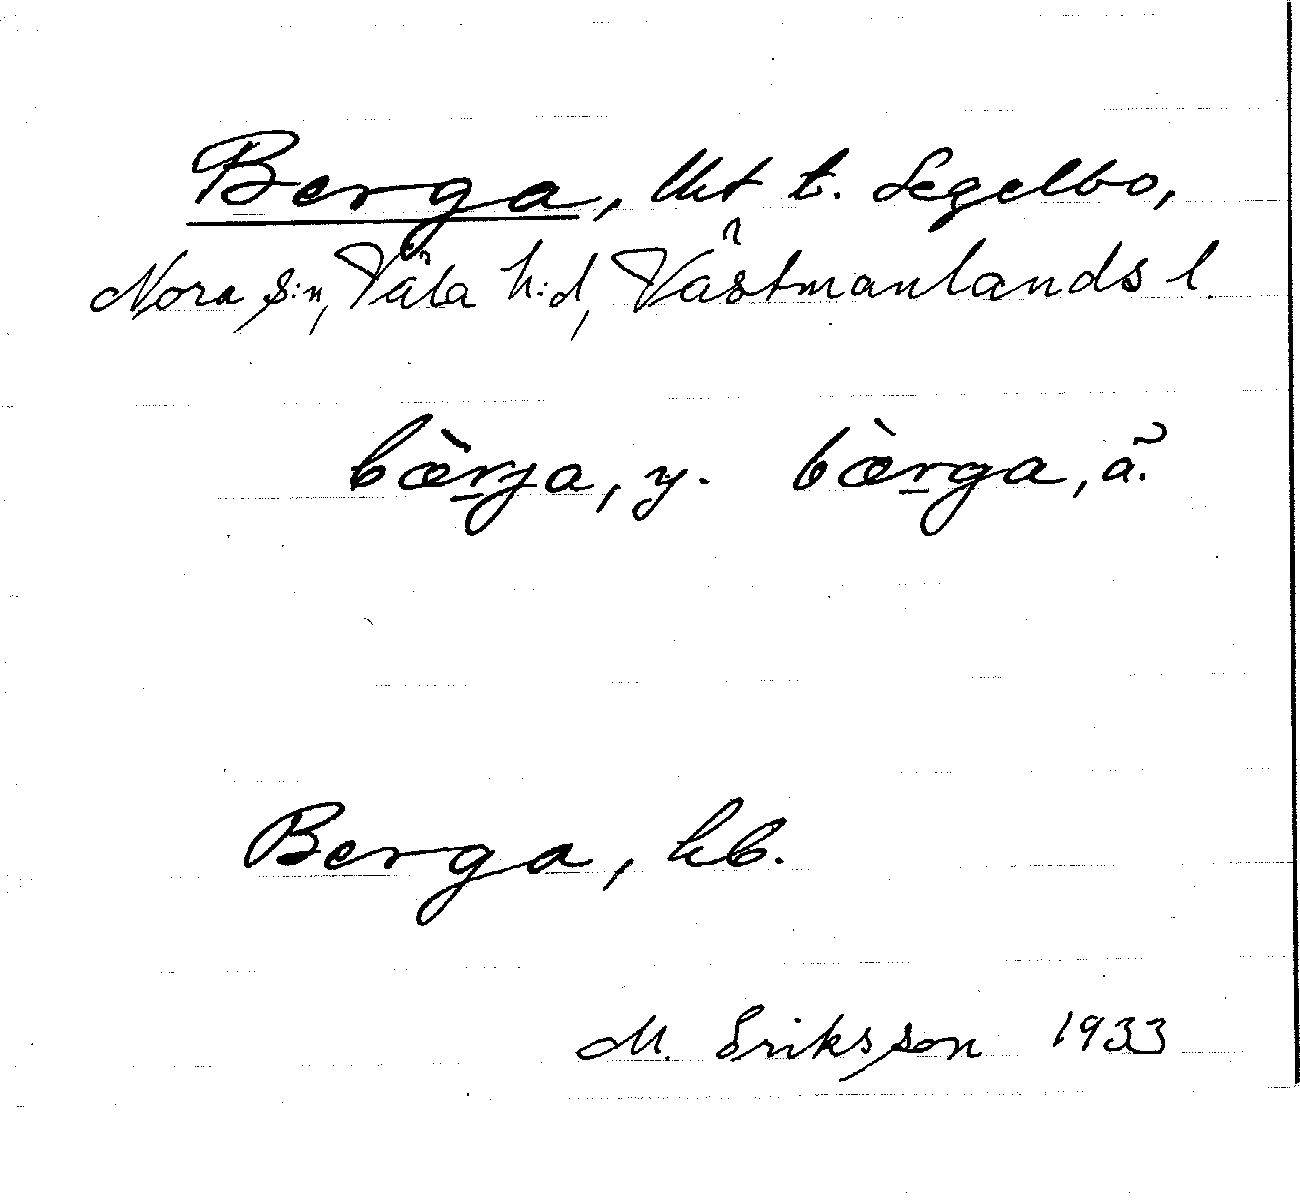 Berga, lht t. Segelbo,
Nora s:n, Våla h:d, Västmanlands l.
bæ̀r̠ja, y. bæ̀r̠ga, ä.
Berga, hb.
M. Eriksson 1933